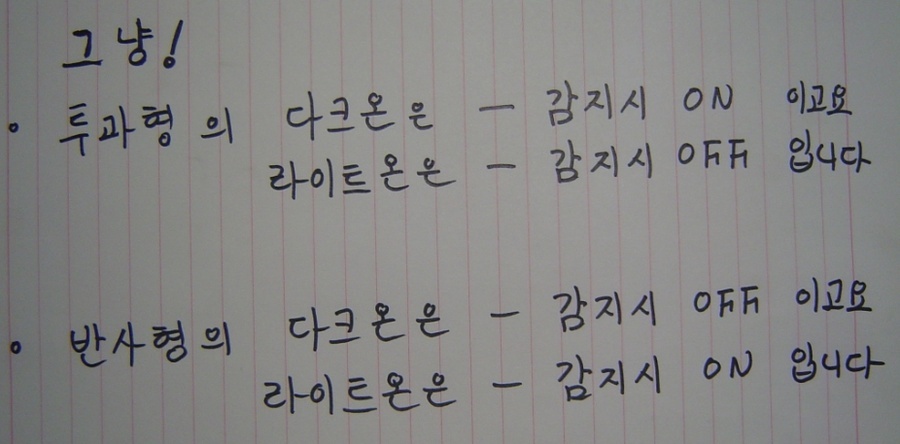 그냥!
• 투과형의 다크온은 - 감지시 ON 이고요
라이트온은 - 감지시 OFF 입니다
• 반사형의 다크온은 - 감지시 OFF 이고요
라이트온은 - 감지시 ON 입니다